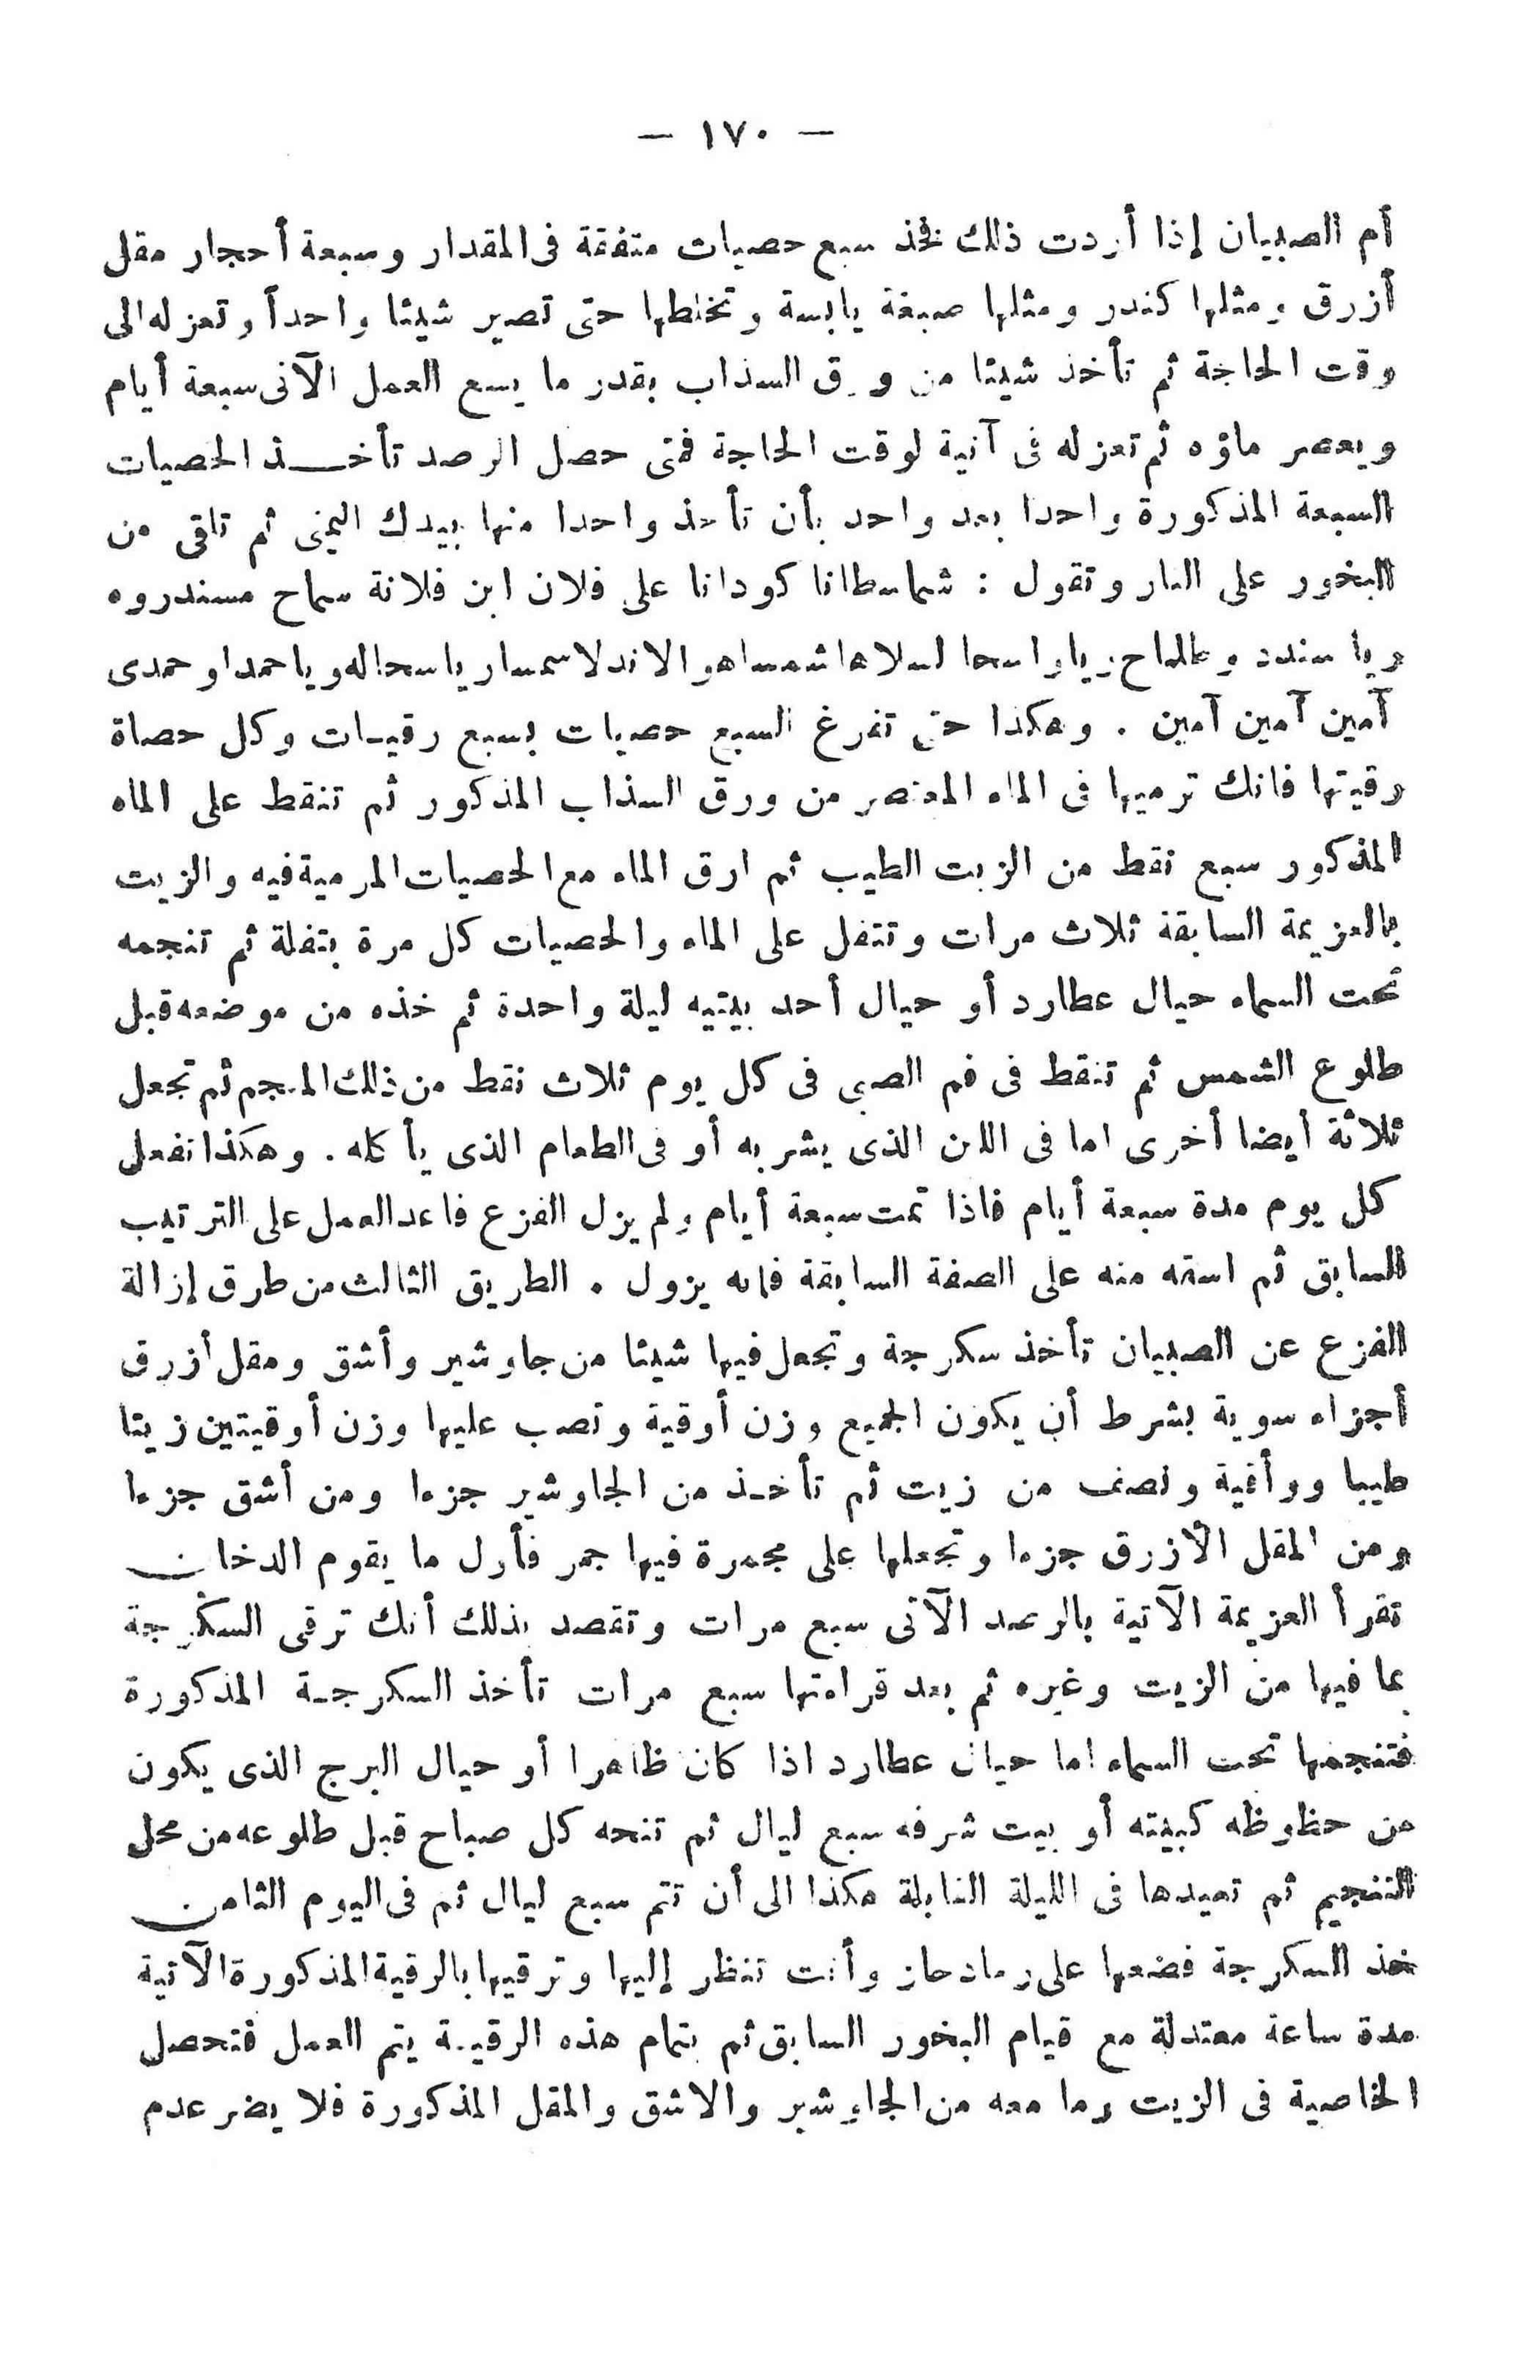 — ١٧٠ —
أم الصبيان إذا أردت ذلك فخذ سبع حصيات متفقة فى المقدار وسبعة أحجار مقل
أزرق ومثلها كندر ومثلها صبغة يابسة وتخلطها حتى تصير شيئا واحداً وتعزله الى
وقت الحاجة ثم تأخذ شيئا من ورق السذاب بقدر ما يسع العمل الآتى سبعة أيام
ويعصر ماؤه ثم تعزله فى آنية لوقت الحاجة فمتى حصل الرصد تأخذ الحصيات
السبعة المذكورة واحدا بعد واحد بأن تأخذ واحدا منها بيدك اليمنى ثم تلقى من
البخور على النار وتقول : شماسطانا كودانا على فلان ابن فلانة سماح مسندروه
ويا سندد وياواسحا ياسحاله وياحمداوحمدى
آمين آمين آمين . وهكذا حتى تفرغ السبع حصيات بسبع رقيات وكل حصاة
رقيتها فانك ترميها فى الماء المعتصر من ورق السذاب المذكور ثم تنقط على الماء
المذكور سبع نقط من الزيت الطيب ثم ارق الماء مع الحصيات المرمية فيه والزيت
بالعزيمة السابقة ثلاث مرات وتتفل على الماء والحصيات كل مرة بتفلة ثم تنجمه
تحت السماء حيال عطارد أو حيال أحد بيتيه ليلة واحدة ثم خذه من موضعه قبل
طلوع الشمس ثم تنقط فى فم الصبى فى كل يوم ثلاث نقط من ذلك المنجم ثم تجعل
ثلاثة أيضا أخرى اما فى اللبن الذى يشربه أو فى الطعام الذى يأكله . وهكذا تفعل
كل يوم مدة سبعة أيام فاذا تمت سبعة أيام ولم يزل الفزع فاعد العمل على الترتيب
السابق ثم اسقه منه على الصفة السابقة فانه يزول . الطريق الثالث من طرق إزالة
الفزع عن الصبيان تأخذ سكرجة وتجعل فيها شيئا من جاوشير وأشق ومقل أزرق
أجزاء سوية بشرط أن يكون الجميع وزن أوقية وتصب عليها وزن أوقيتين زيتا
طيبا ووأقية ونصف من زيت ثم تأخذ من الجاوشير جزءا ومن أشق جزءا
ومن المقل الأزرق جزءا وتجعلها على مجمرة فيها جمر فأول ما يقوم الدخان
تقرأ العزيمة الآتية بالرصد الآتى سبع مرات وتقصد بذلك أنك ترقى السكرجة
بما فيها من الزيت وغيره ثم بعد قراءتها سبع مرات تأخذ السكرجة المذكورة
فتنجمها تحت السماء اما حيال عطارد اذا كان ظاهرا أو حيال البرج الذى يكون
من حظوظه كبيته أو بيت شرفه سبع ليال ثم تنحه كل صباح قبل طلوعه من محل
التنجيم ثم تعيدها فى الليلة القابلة هكذا الى أن تتم سبع ليال ثم فى اليوم الثامن
خذ السكرجة فضعها على رماد حار وأنت تنظر إليها وترقيها بالرقية المذكورة الآتية
مدة ساعة معتدلة مع قيام البخور السابق ثم بتمام هذه الرقية يتم العمل فتحصل
الخاصية فى الزيت وما معه من الجاوشير والاشق والمقل المذكورة فلا يضر عدم